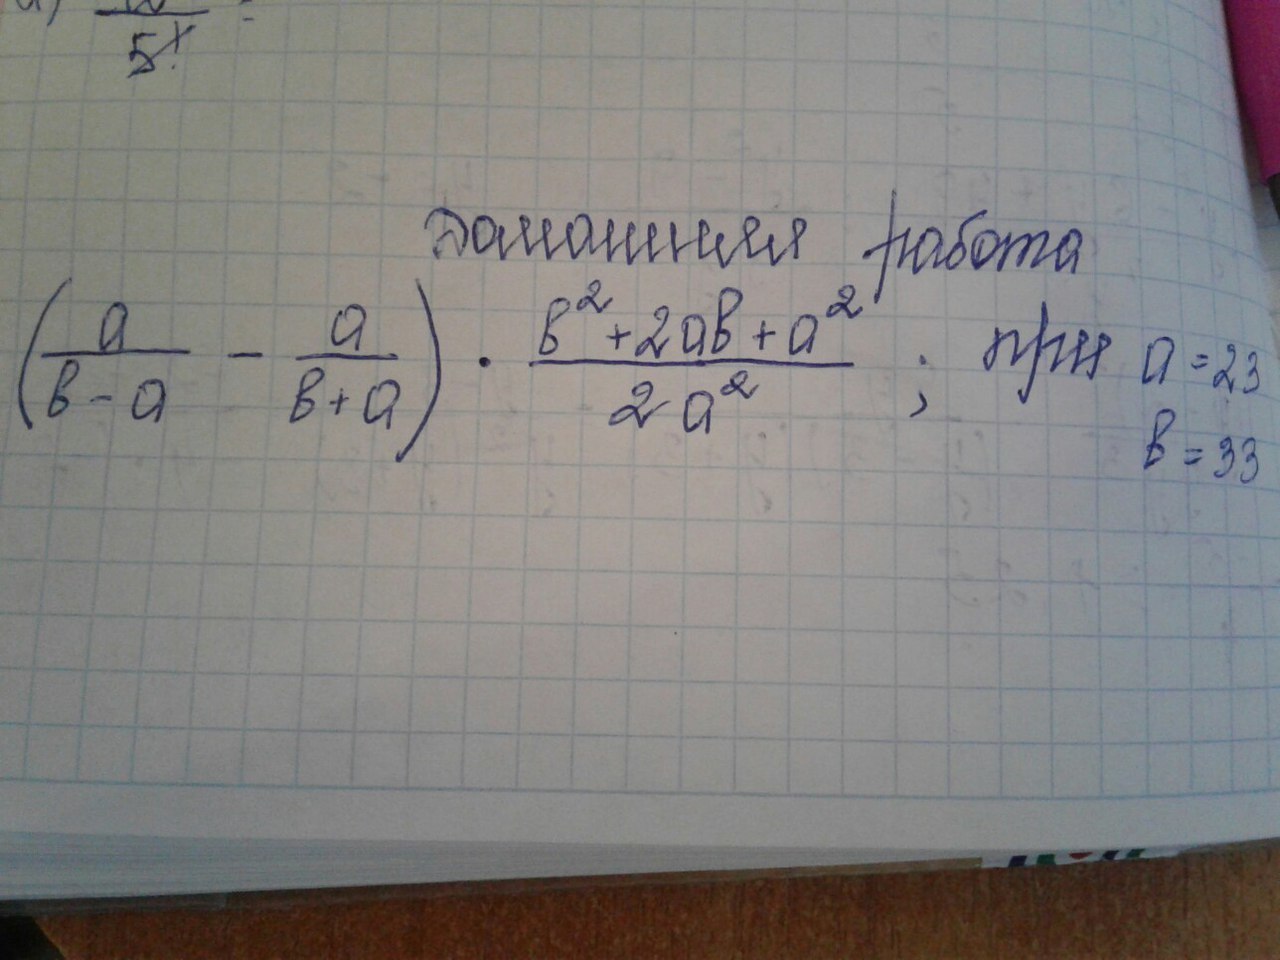 5!
Домашняя работа
(a/(b-a) - a/(b+a)) · (b²+2ab+a²)/(2a²) ; при a=23
b=33